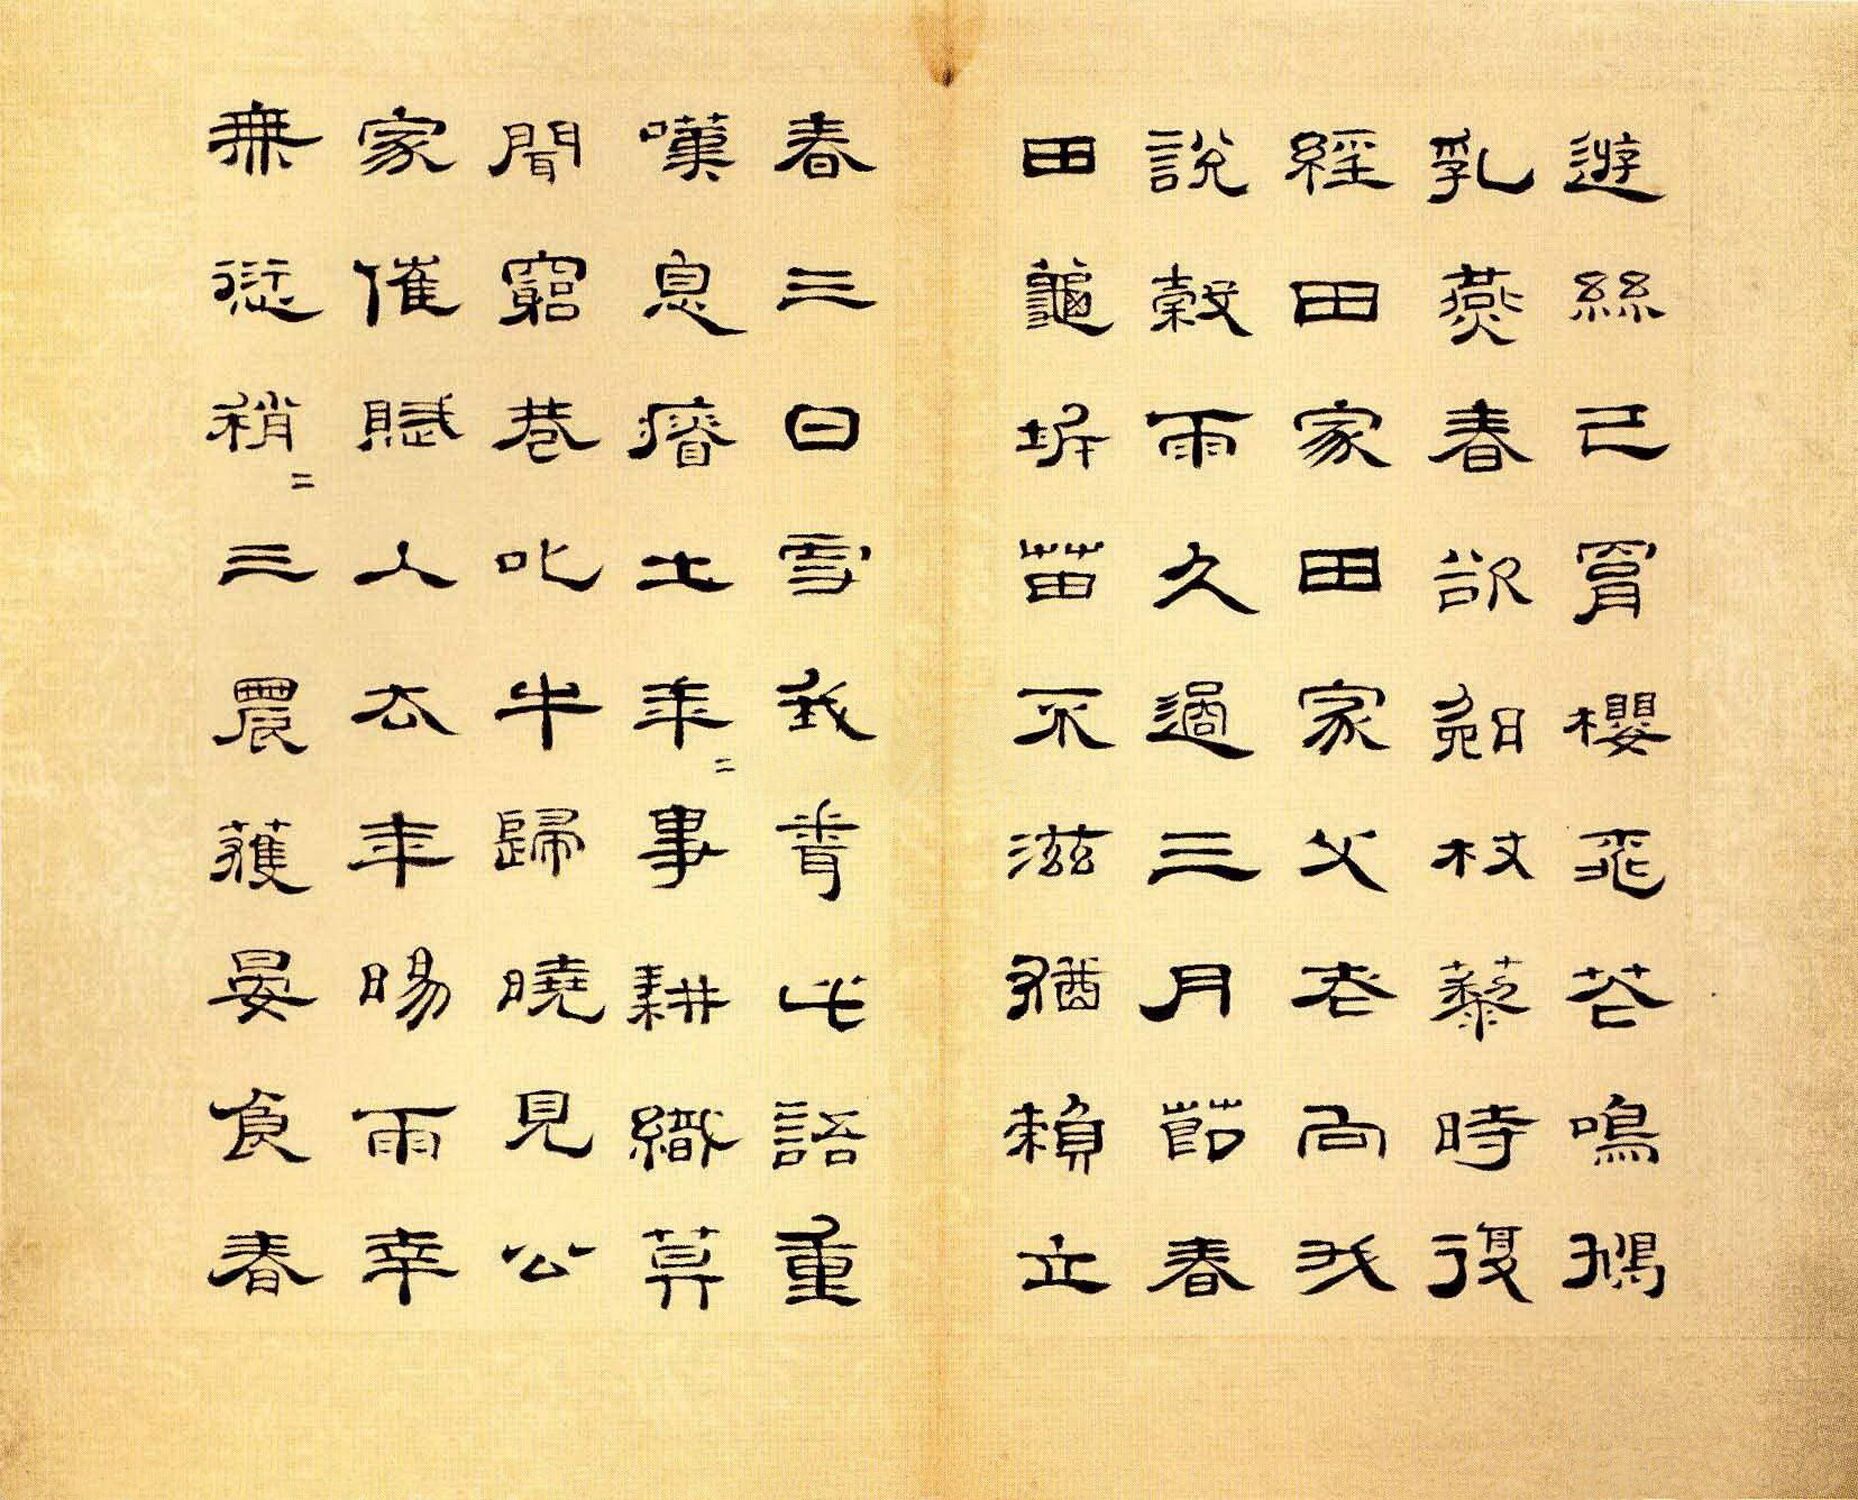 遊絲已罥櫻飛花鳴鳩
乳燕春欲晚杖藜時復
經田家田家父老向我
說穀雨久過三月節春
田龜坼苗不滋猶賴立
春三日雪我聞此語重
嘆息瘠土年〻事耕織莫
聞窮巷叱牛歸曉見公
家催賦人去年暘雨幸
無愆稍〻三農獲晏食春